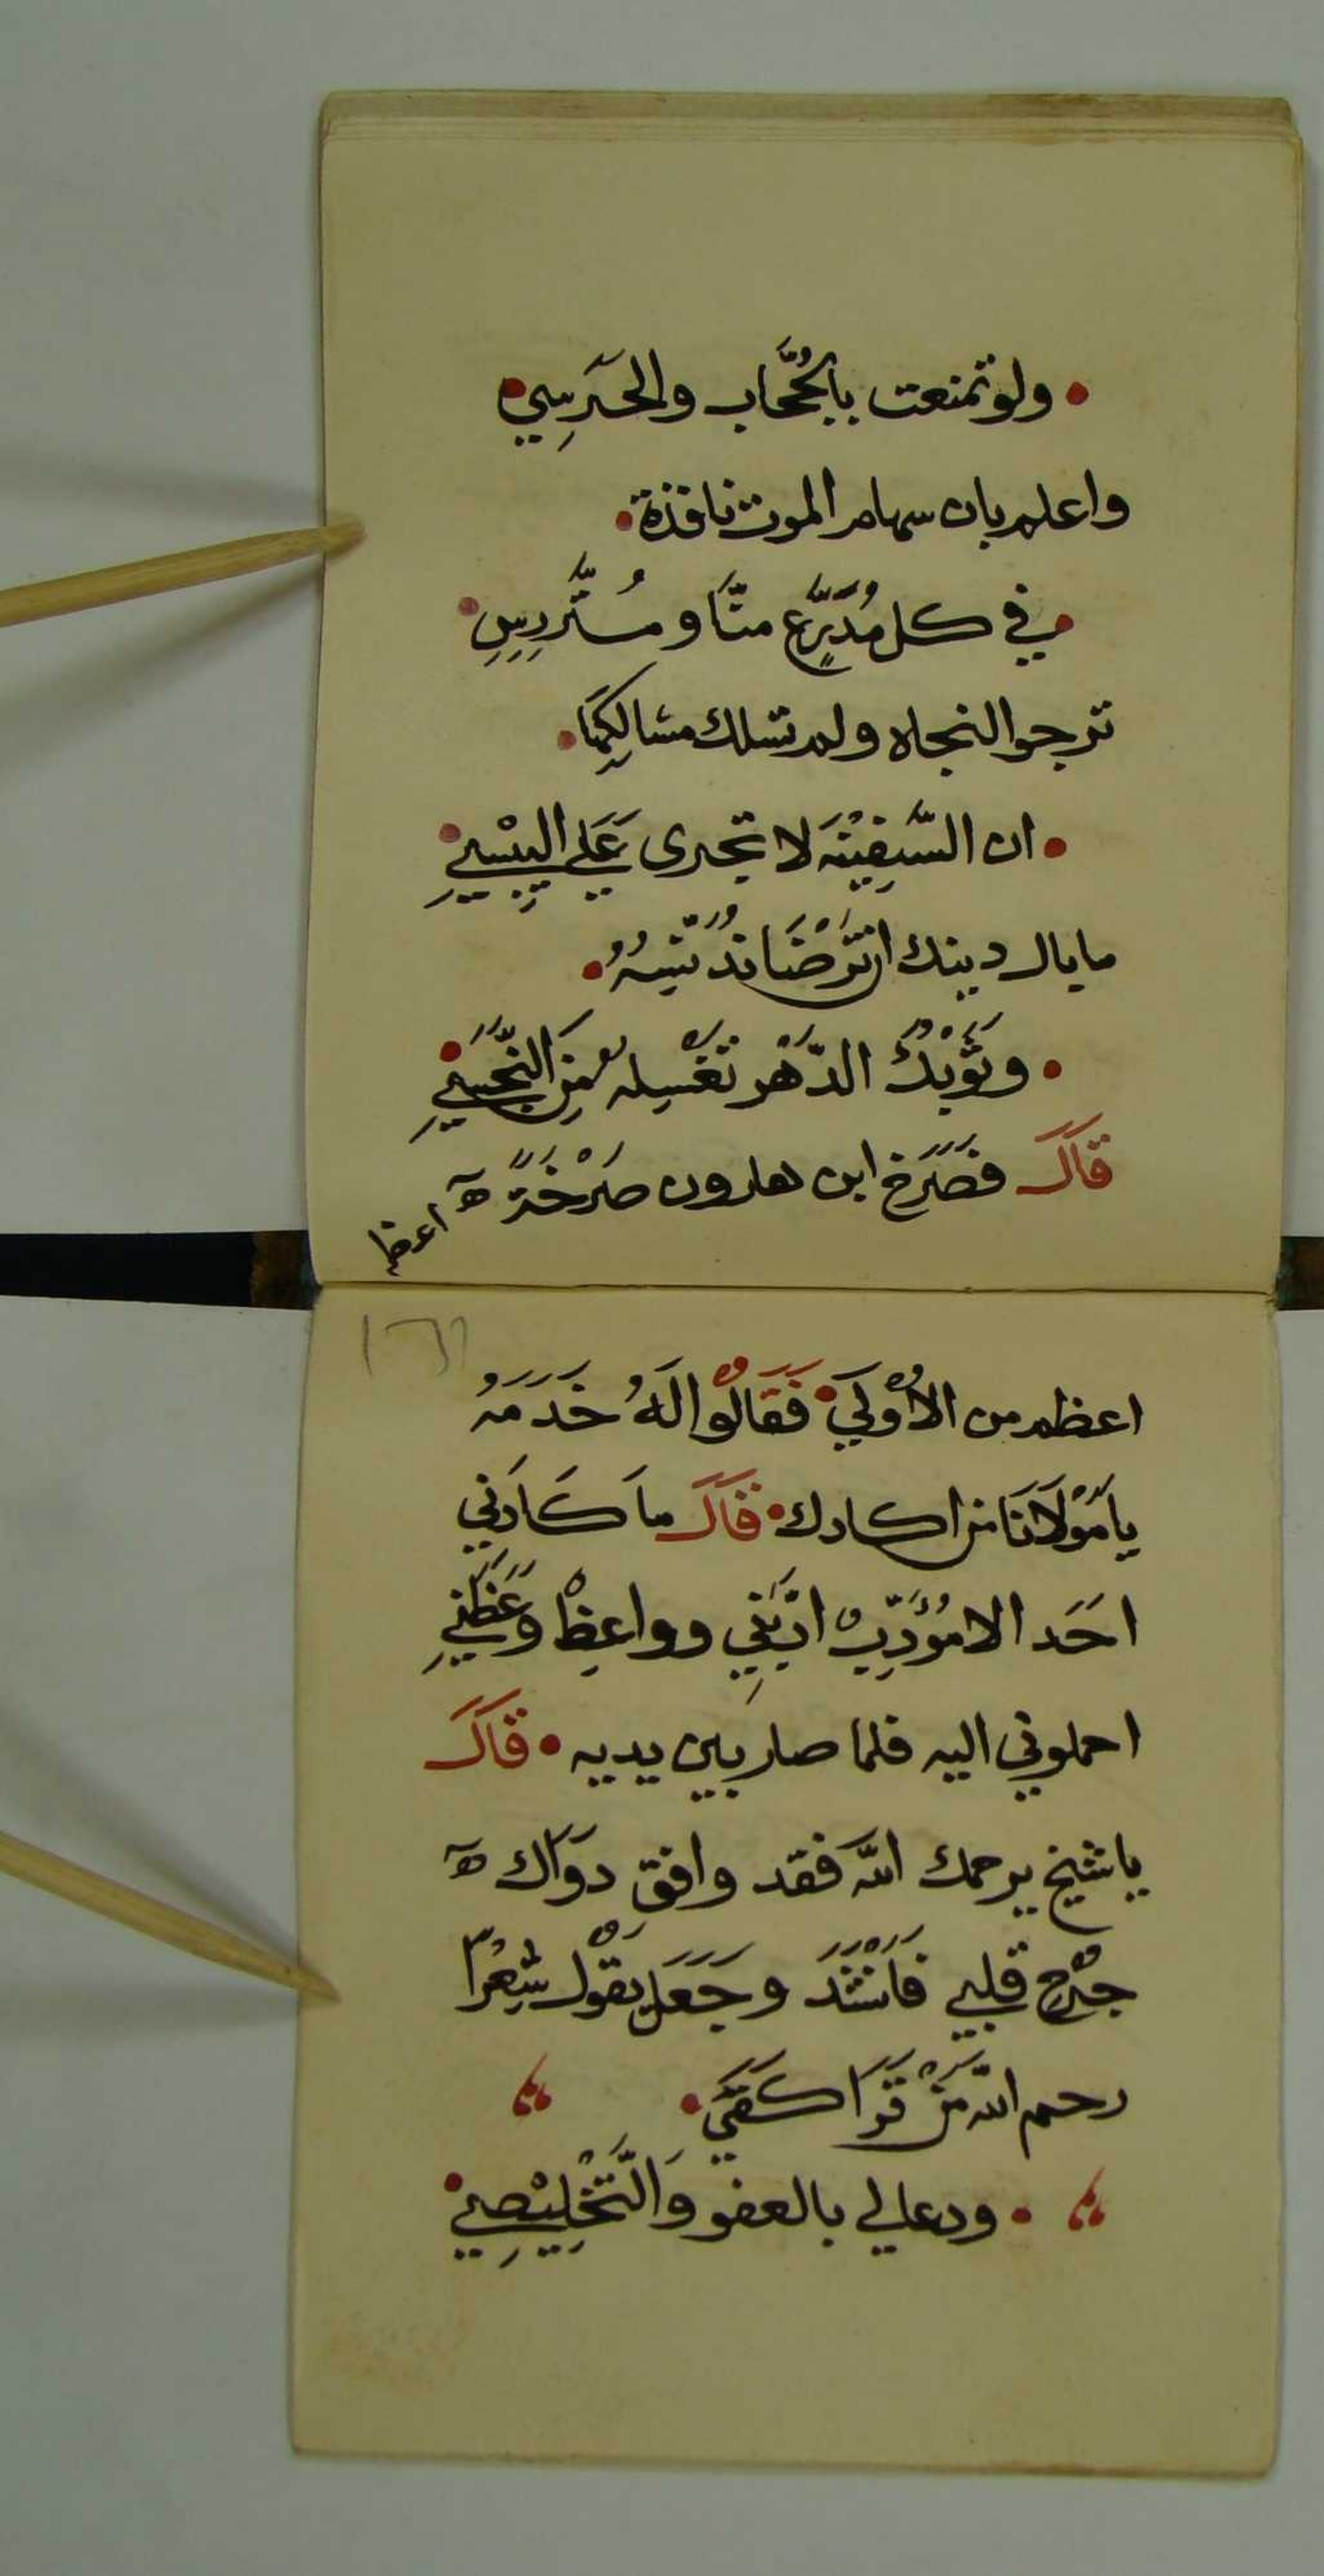 • ولو تمنعت بالحُجَّاب والحَرَسِي •
واعلم بان سهام الموت نافذة •
• في كل مُدَّرِعٍ منَّا ومُتَّرِسِ •
ترجوا النجاه ولم تسلك مسالكِهَا •
• ان السَّفِيْنَه لا تجرى عَلَي اليَبَسِي •
ما بال دينك ان تَرْضَا تُدَنِّسُهُ •
• وثَوْبُكَ الدَّهْر تَغْسِله مِنَ النَّجَسِي •
قَالَ فَصَرَخ ابن هارون صَرْخَةً ه
اعظم
١٦٦
اعظم من الاُوْلَي • فَقَالُوْا لَهُ خَدَمَهُ
يامَوْلَانَا من اكادك • فقَالَ ما كَادَنِي
اَحَد الا مُؤَدِّبْ ادَّبَنِي وواعِظْ وَعَظَنِي
احملوني اليه فلما صار بين يديه • قَالَ
ياشيخ يرحمك الله فقد وافق دَوَاك ه
جُرْح قلبي فَاَنْشَدَ وجَعَلَ يقْول شِعْرًا
رحم الله مَنْ قَرَا كَفَنِي •
• ودعا لي بالعفو وَالتَّخْلِيْصِي •